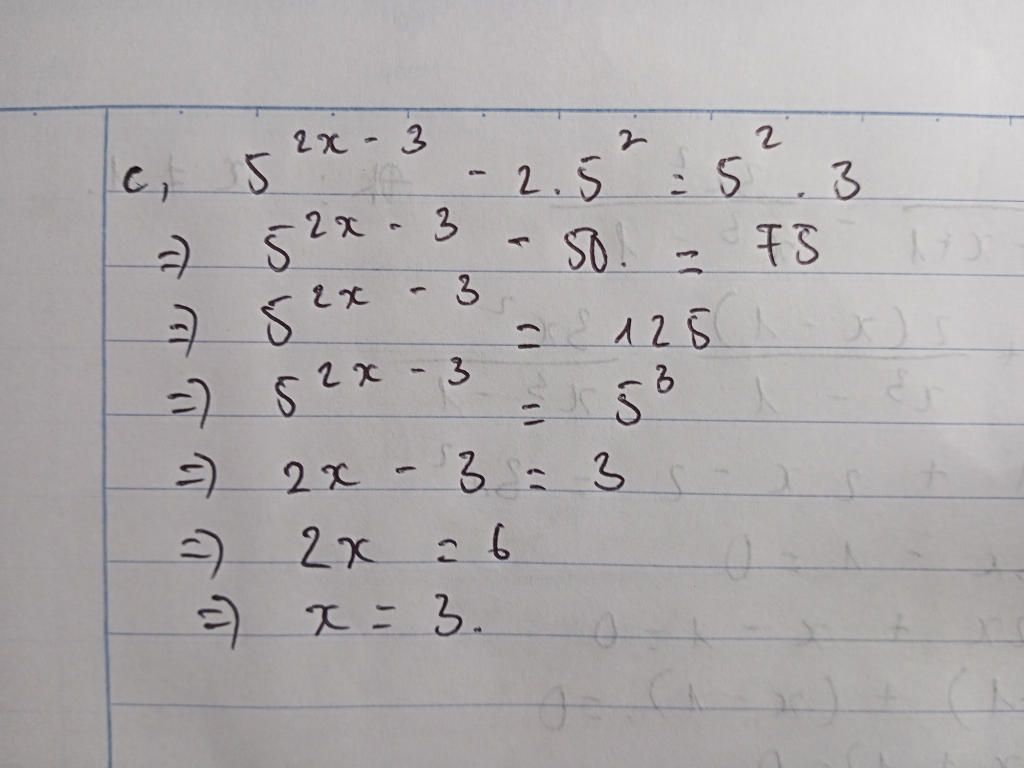 c, 5^{2x - 3} - 2.5^2 = 5^2 . 3
=) 5^{2x - 3} - 50. = 75
=) 5^{2x - 3} = 125
=) 5^{2x - 3} = 5^3
=) 2x - 3 = 3
=) 2x = 6
=) x = 3.